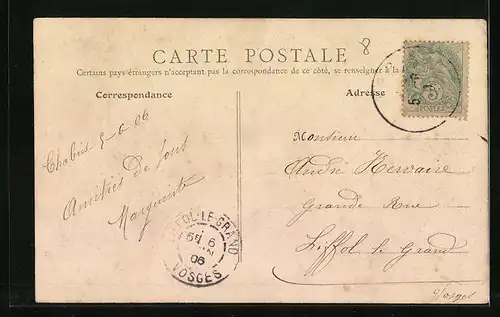 8
CARTE POSTALE
Certains pays étrangers n'acceptant pas la correspondance de ce côté, se renseigner à la
Correspondance
Adresse
POSTES
Chabris 5-6 06
Amitiés de tous
Marguerite
Monsieur
André Hervaire
Grande Rue
Liffol le Grand
Vosges
LIFFOL-LE-GRAND
6
06
VOSGES